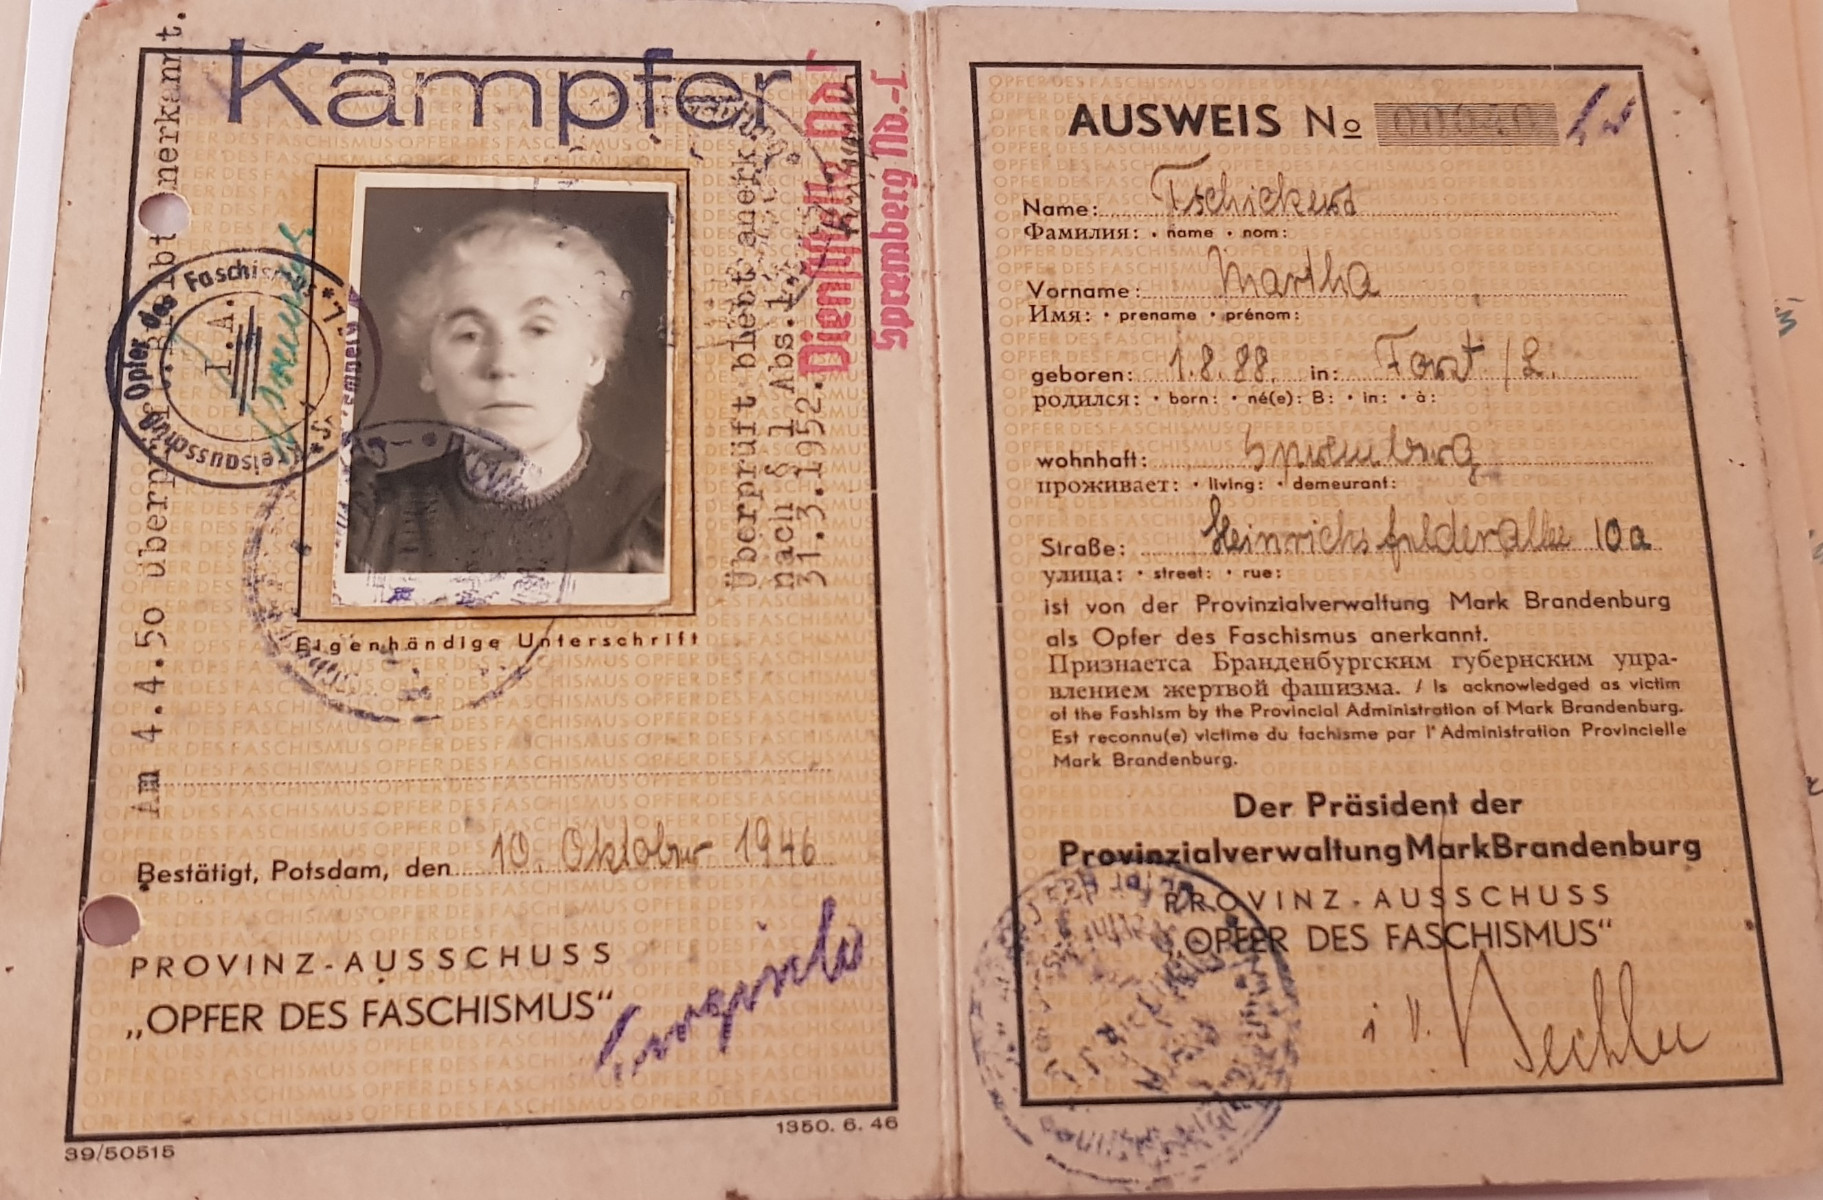 Kämpfer
Am 4.4.50 überprüft. Bleibt anerkannt.
Kreisausschuß Opfer des Faschismus
I.A.
Überprüft bleibt anerk
nach § 1 Abs. 1
31.3.1952.
Dienststelle VdN
Spremberg Nd.-L
Eigenhändige Unterschrift
Bestätigt, Potsdam, den 10. Oktober 1946
PROVINZ-AUSSCHUSS
„OPFER DES FASCHISMUS“
39/50515
1350. 6. 46
AUSWEIS No
Name: Tschickert
Фамилия: • name • nom:
Vorname: Martha
Имя: • prename • prénom:
geboren: 1.8.88. in: Forst /L.
родился: • born: • né(e): В: • in: • à:
wohnhaft: Spremberg
проживает: • living: • demeurant:
Straße: Heinrichsfelderallee 10a
улица: • street: • rue:
ist von der Provinzialverwaltung Mark Brandenburg
als Opfer des Faschismus anerkannt.
Признается Бранденбургским губернским упра-
влением жертвой фашизма. / Is acknowledged as victim
of the Fashism by the Provincial Administration of Mark Brandenburg.
Est reconnu(e) victime du fachisme par l'Administration Provincielle
Mark Brandenburg.
Der Präsident der
Provinzialverwaltung Mark Brandenburg
PROVINZ-AUSSCHUSS
„OPFER DES FASCHISMUS“
i V.